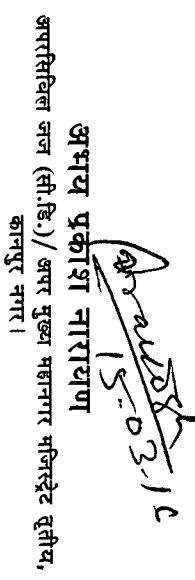 15-03-1
अभय प्रकाश नारायण
अपरसिविल जज (सी.डि.)/ अपर मुख्य महानगर मजिस्ट्रेट तृतीय,
कानपुर नगर।